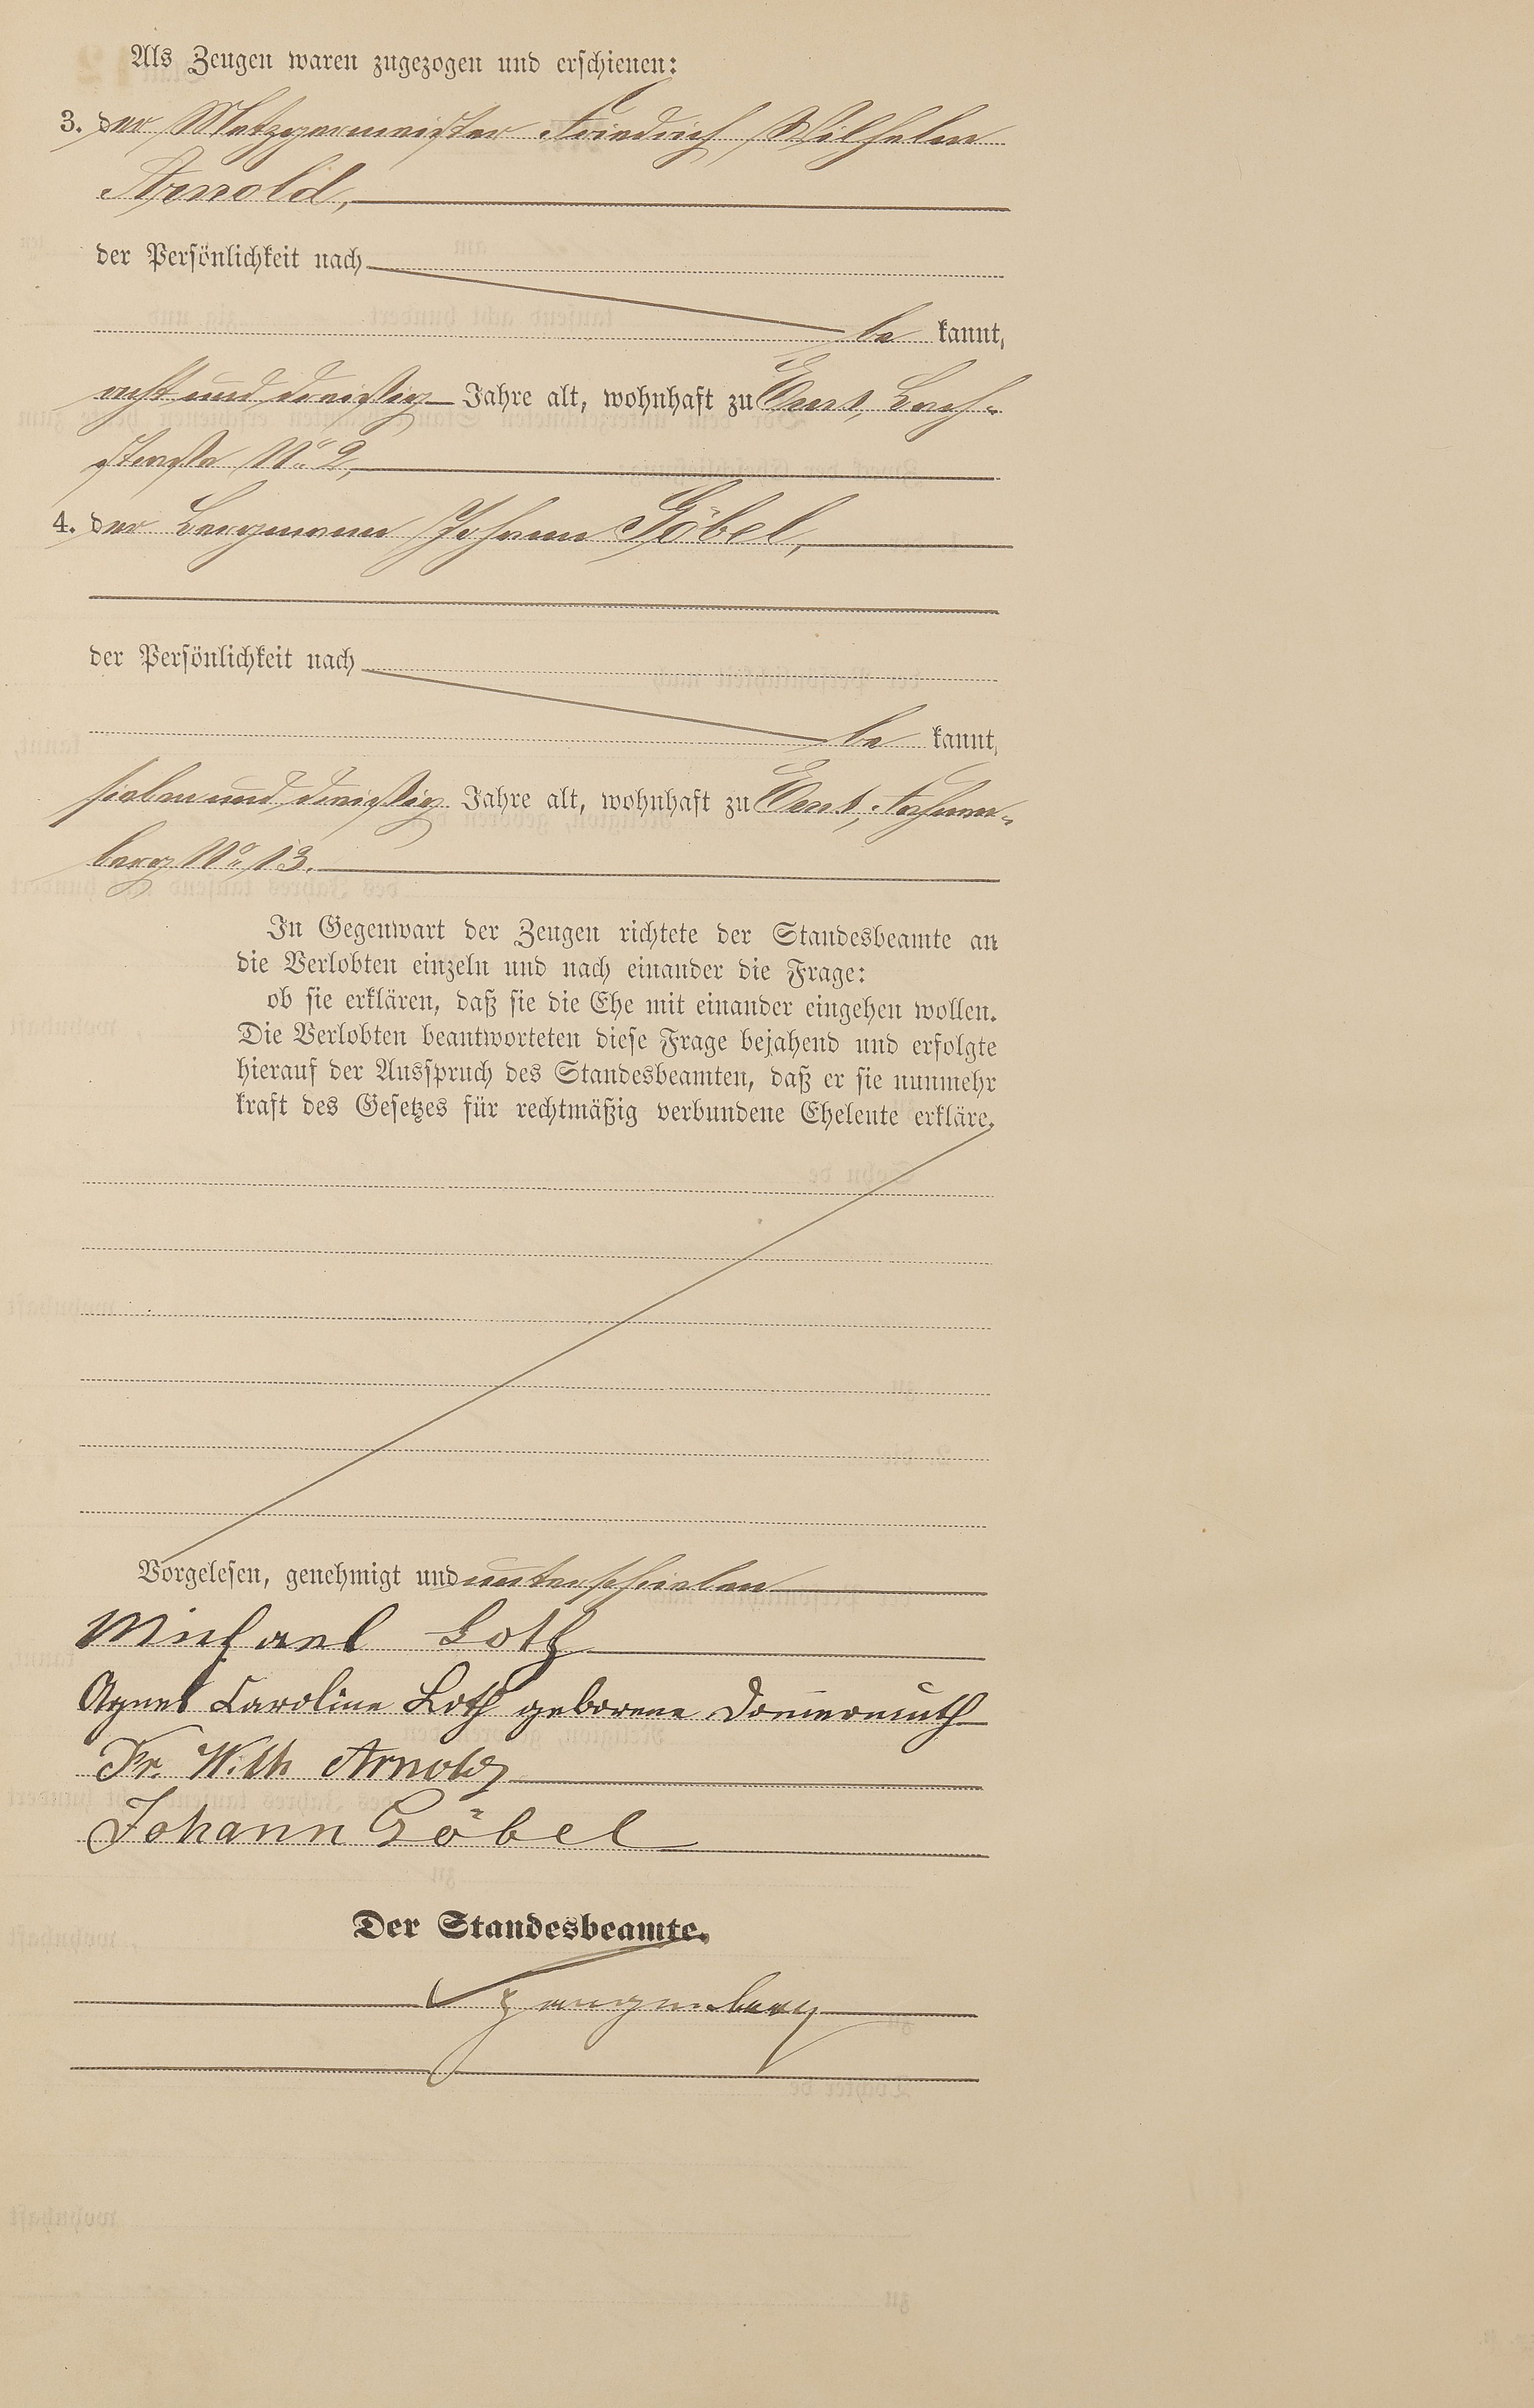 Als Zeugen waren zugezogen und erschienen:
3. der Metzgermeister Friedrich Wilhelm
Arnold,
der Persönlichkeit nach
be kannt,
acht und dreißig Jahre alt, wohnhaft zu Ems, Bach-
straße No 2,
4. der Bergmann Johann Göbel,
der Persönlichkeit nach
be kannt,
sieben und dreißig Jahre alt, wohnhaft zu Ems,
berg No 13.
In Gegenwart der Zeugen richtete der Standesbeamte an
die Verlobten einzeln und nach einander die Frage:
ob sie erklären, daß sie die Ehe mit einander eingehen wollen.
Die Verlobten beantworteten diese Frage bejahend und erfolgte
hierauf der Ausspruch des Standesbeamten, daß er sie nunmehr
kraft des Gesetzes für rechtmäßig verbundene Eheleute erkläre.
Vorgelesen, genehmigt und unterschrieben
Michael Loth
Agnes Caroline Loth geborene Domermuth
Fr. Wilh Arnold
Johann Göbel
Der Standesbeamte.